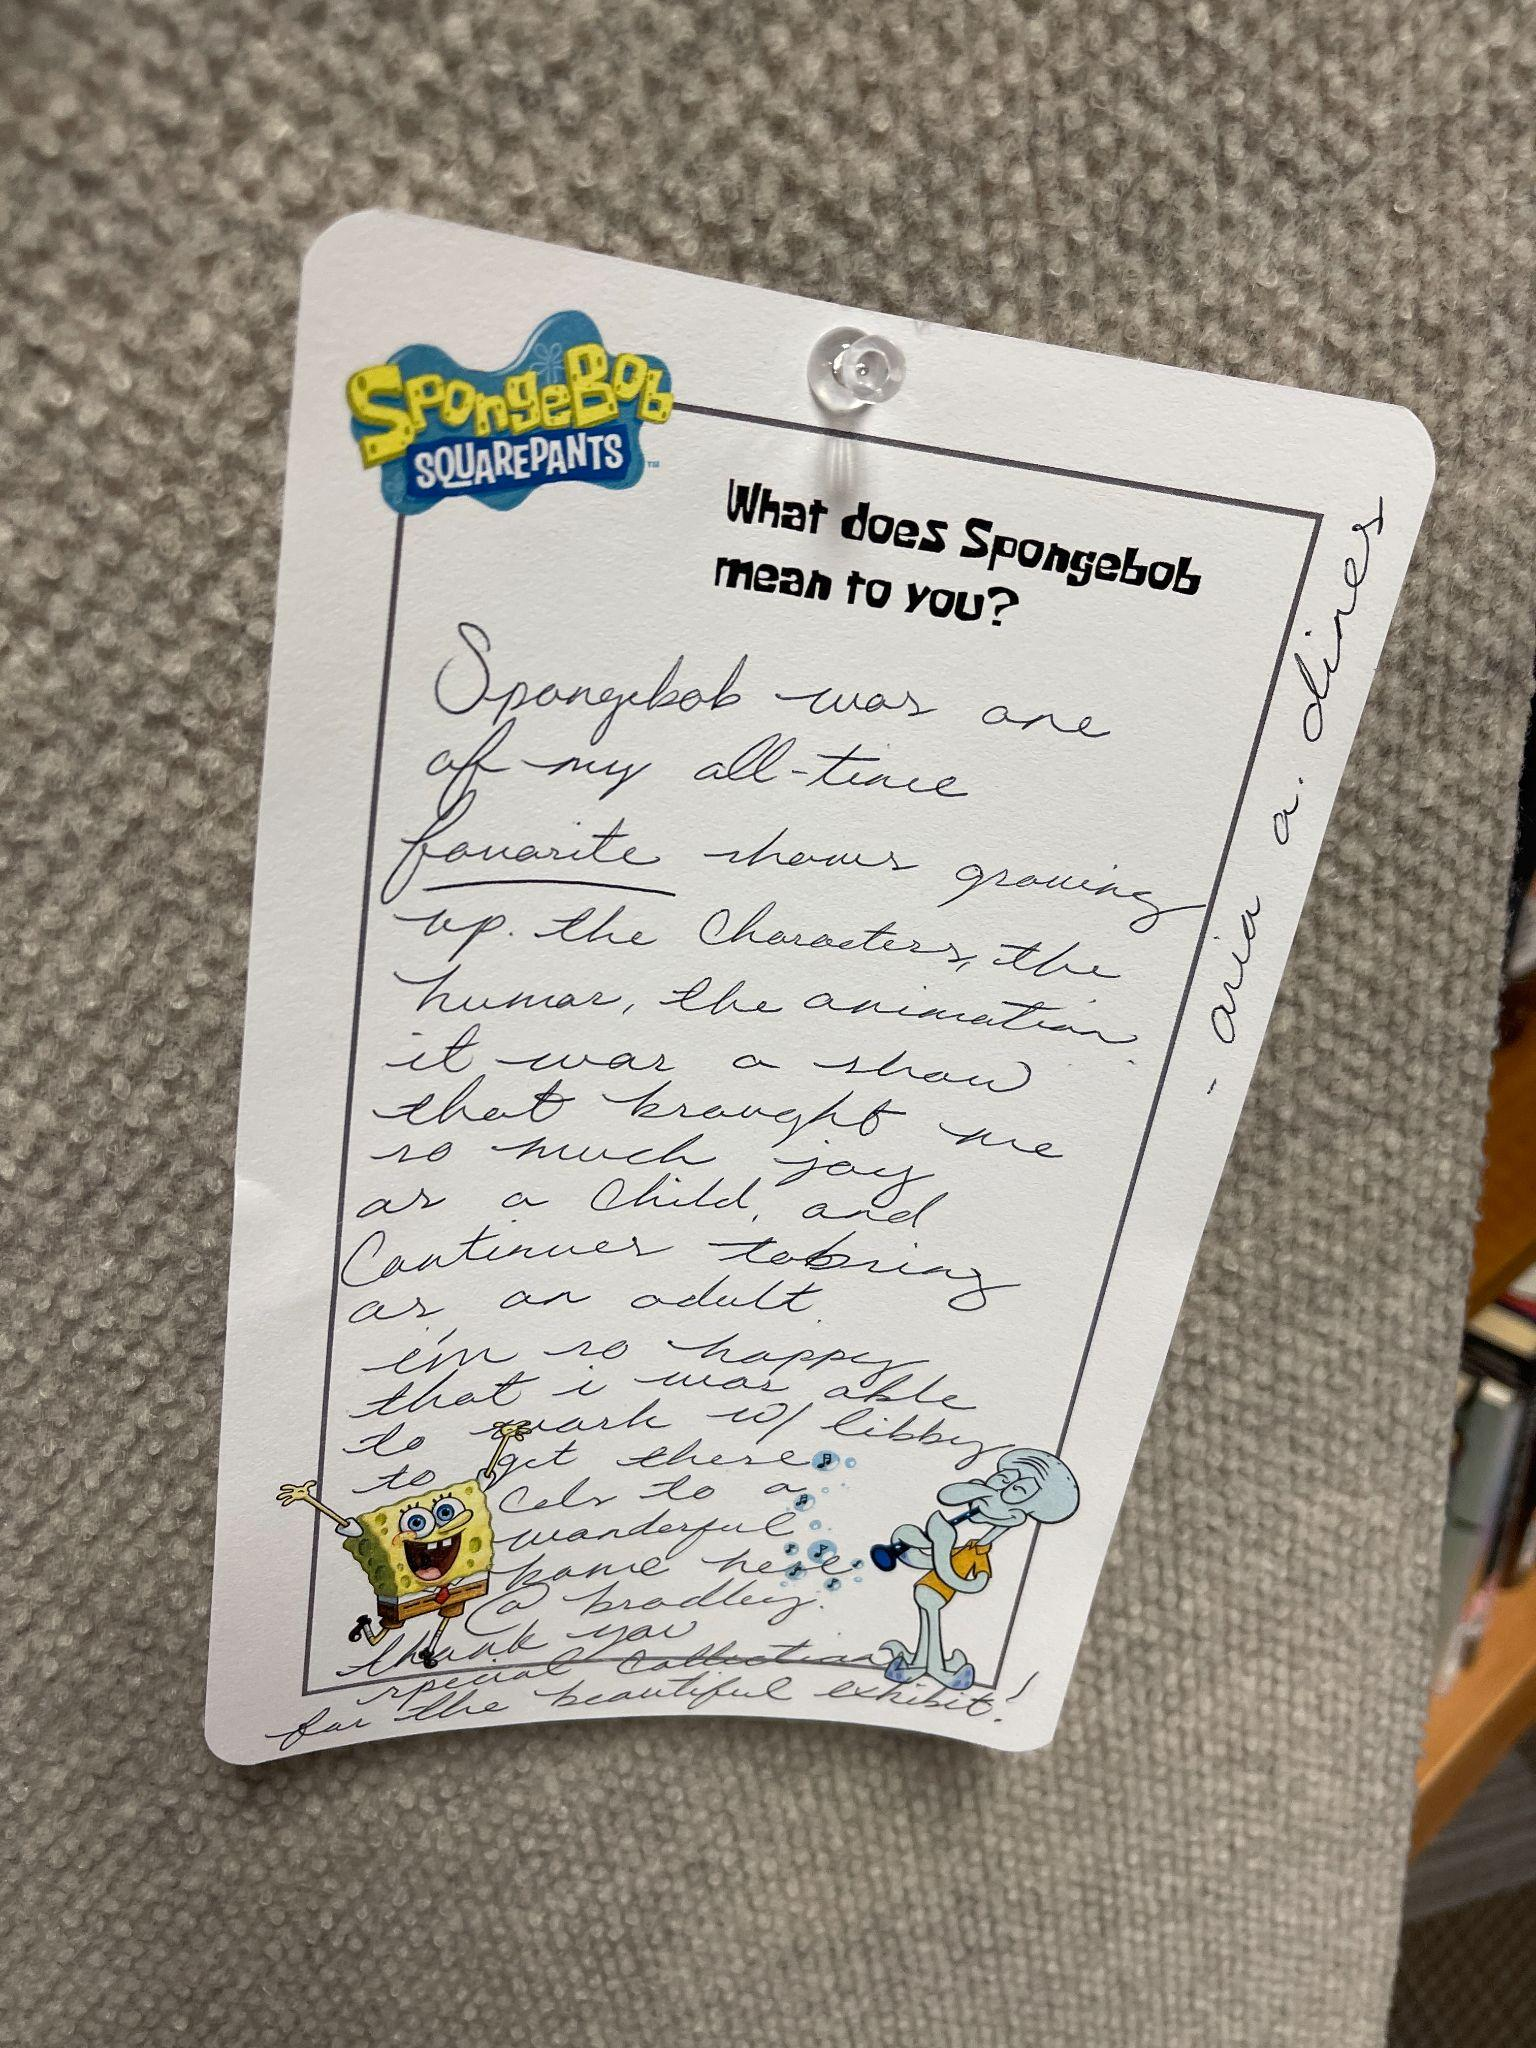 SPONGEBOB
SQUAREPANTS™
What does Spongebob
mean to you?
Spongebob was one
of my all-time
favorite shows growing
up. the characters, the
humor, the animation.
it was a show
that brought me
so much joy
as a child, and
Continues to bring
as an adult.
i'm so happy
that i was able
to work w/ libby
to get these
Cels to a
wonderful
home here
@ bradley.
thank you
special collections
for the beautiful exhibit!
- aria a. diner